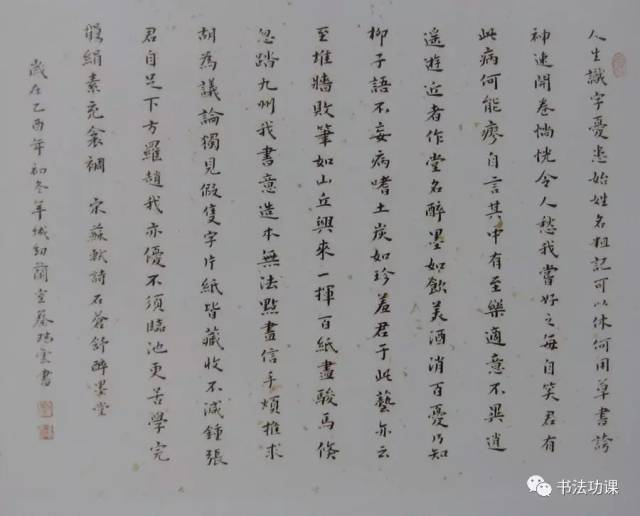 人生識字憂患始姓名粗記可以休何用草書誇
神速開卷惝恍令人愁我嘗好之每自笑君有
此病何能瘳自言其中有至樂適意不異逍
遙遊近者作堂名醉墨如飲美酒消百憂乃知
柳子語不妄病嗜土炭如珍羞君于此藝亦云
至堆牆敗筆如山丘興來一揮百紙盡駿馬倏
忽踏九州我書意造本無法點畫信手煩推求
胡為議論獨見假隻字片紙皆藏收不減鍾張
君自足下方羅趙我亦優不須臨池更苦學完
取絹素充衾裯 宋蘇軾詩石蒼舒醉墨堂
歲在乙酉年初冬年城幼蘭室蔡瑞雲書
书法功课